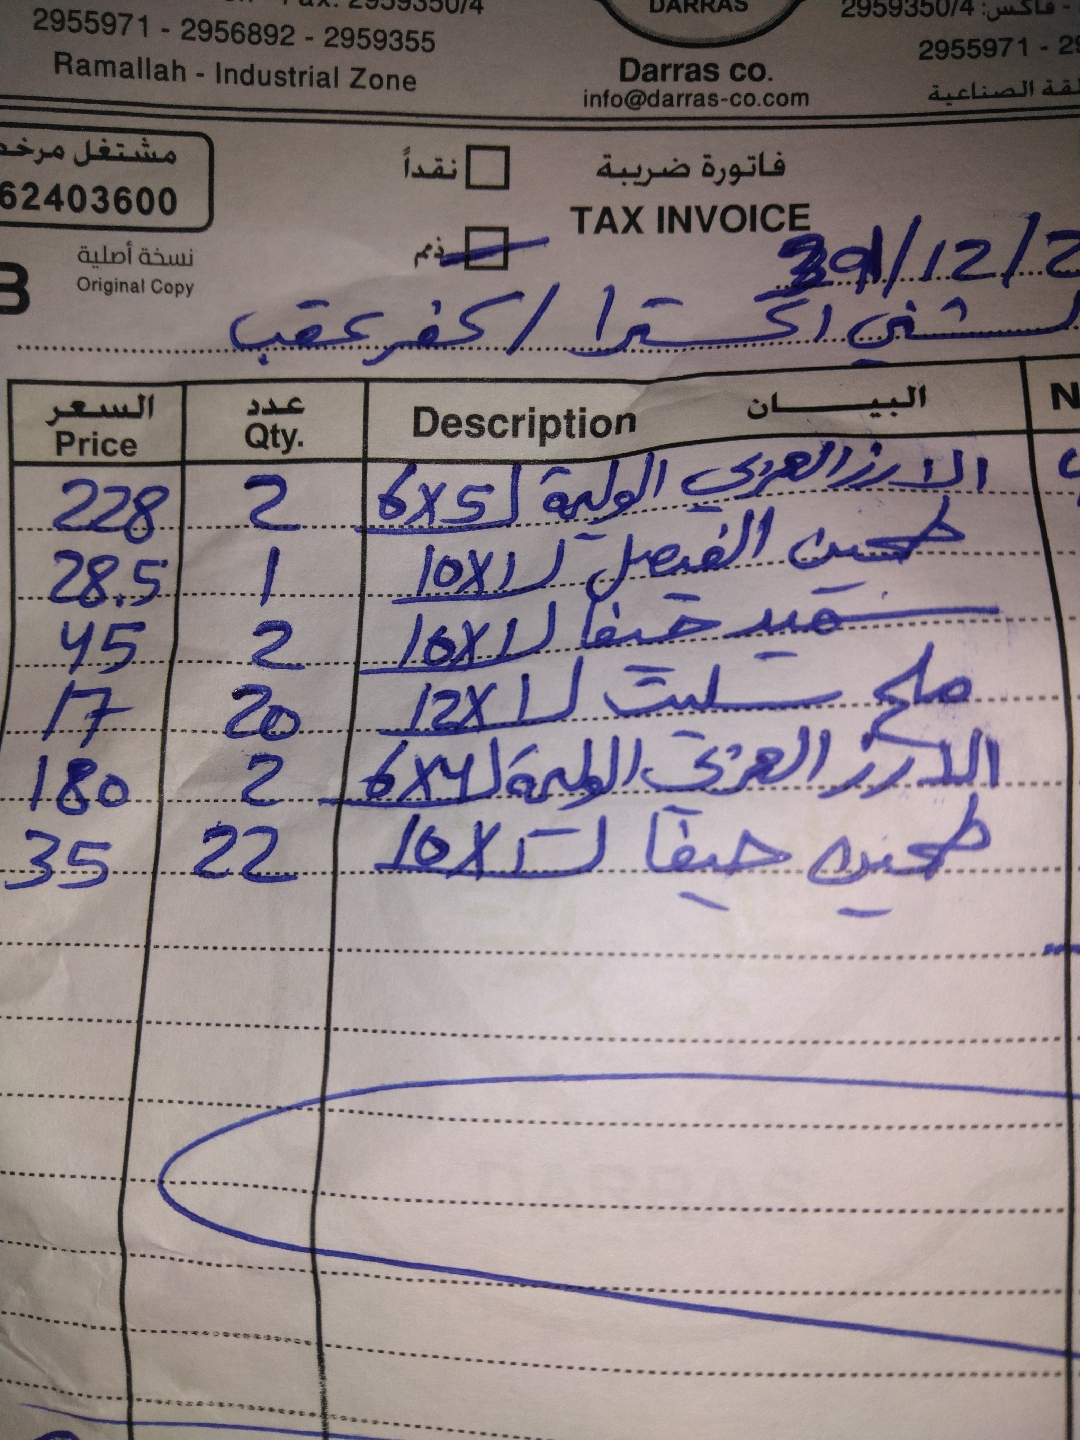 فاكس: 2959350/4 Fax: 2959350/4
2955971 - 2956892 - 2959355 DARRAS 2955971
Ramallah - Industrial Zone Darras co. الصناعية
info@darras-co.com
مشتغل مرخ
62403600
نقداً
ذمم
فاتورة ضريبة
TAX INVOICE
نسخة أصلية
Original Copy
/12/2
اكسترا / كفر عقب
السعر عدد البيـــــان
Price Qty. Description N
228 2 الارز العربي الوليمة 6X5
28.5 1 طحين الفيصل ل 10X1
45 2 سميد حيفا ل 10X1
17 20 ملح سليت ل 12X1
180 2 الارز العربي الوليمة ل 6X4
35 22 طحين حيفا ل 10X1